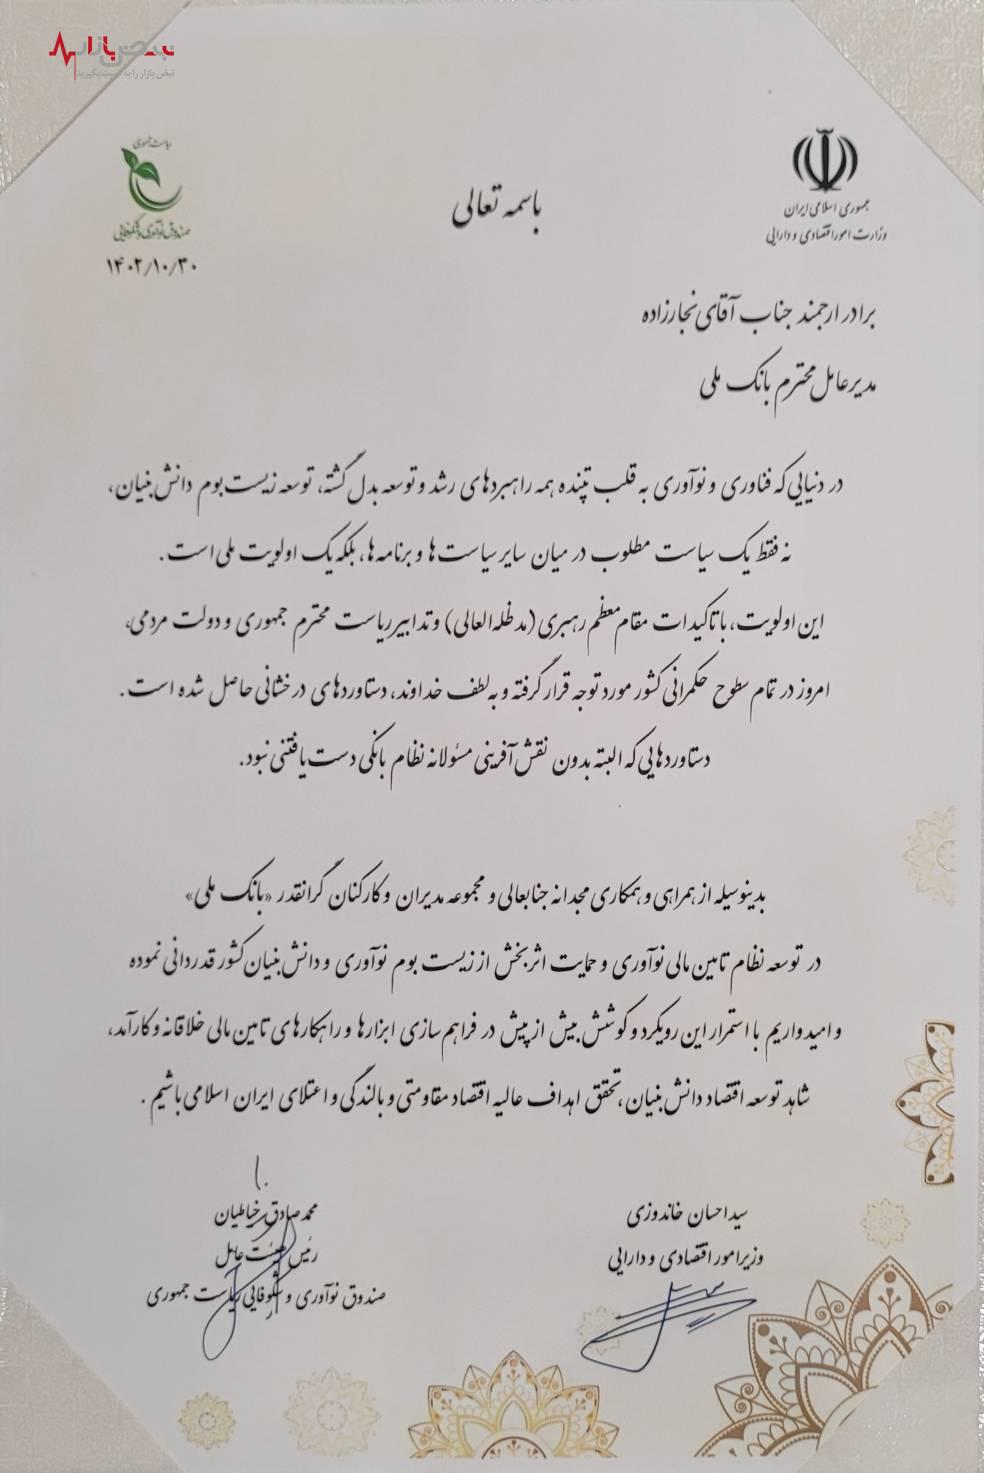 نبض بازار
نبض بازار را به دست بگیرید
ریاست جمهوری
صندوق نوآوری و شکوفایی
۱۴۰۲/۱۰/۳۰
باسمه تعالی
جمهوری اسلامی ایران
وزارت امور اقتصادی و دارایی
برادر ارجمند جناب آقای نجارزاده
مدیرعامل محترم بانک ملی
در دنیایی که فناوری و نوآوری به قلب تپنده همه راهبردهای رشد و توسعه بدل گشته، توسعه زیست بوم دانش بنیان،
نه فقط یک سیاست مطلوب در میان سایر سیاست ها و برنامه ها، بلکه یک اولویت ملی است.
این اولویت، با تاکیدات مقام معظم رهبری (مدظله العالی) و تدابیر ریاست محترم جمهوری و دولت مردمی،
امروز در تمام سطوح حکمرانی کشور مورد توجه قرار گرفته و به لطف خداوند، دستاوردهای درخشانی حاصل شده است.
دستاوردهایی که البته بدون نقش آفرینی مسئولانه نظام بانکی دست یافتنی نبود.
بدینوسیله از همراهی و همکاری مجدانه جنابعالی و مجموعه مدیران و کارکنان گرانقدر «بانک ملی»
در توسعه نظام تامین مالی نوآوری و حمایت اثربخش از زیست بوم نوآوری و دانش بنیان کشور قدردانی نموده
و امیدواریم با استمرار این رویکرد و کوشش بیش از پیش در فراهم سازی ابزارها و راهکارهای تامین مالی خلاقانه و کارآمد،
شاهد توسعه اقتصاد دانش بنیان، تحقق اهداف عالیه اقتصاد مقاومتی و بالندگی و اعتلای ایران اسلامی باشیم.
سید احسان خاندوزی
وزیر امور اقتصادی و دارایی
محمدصادق خیاطیان
رئیس هیئت عامل
صندوق نوآوری و شکوفایی ریاست جمهوری